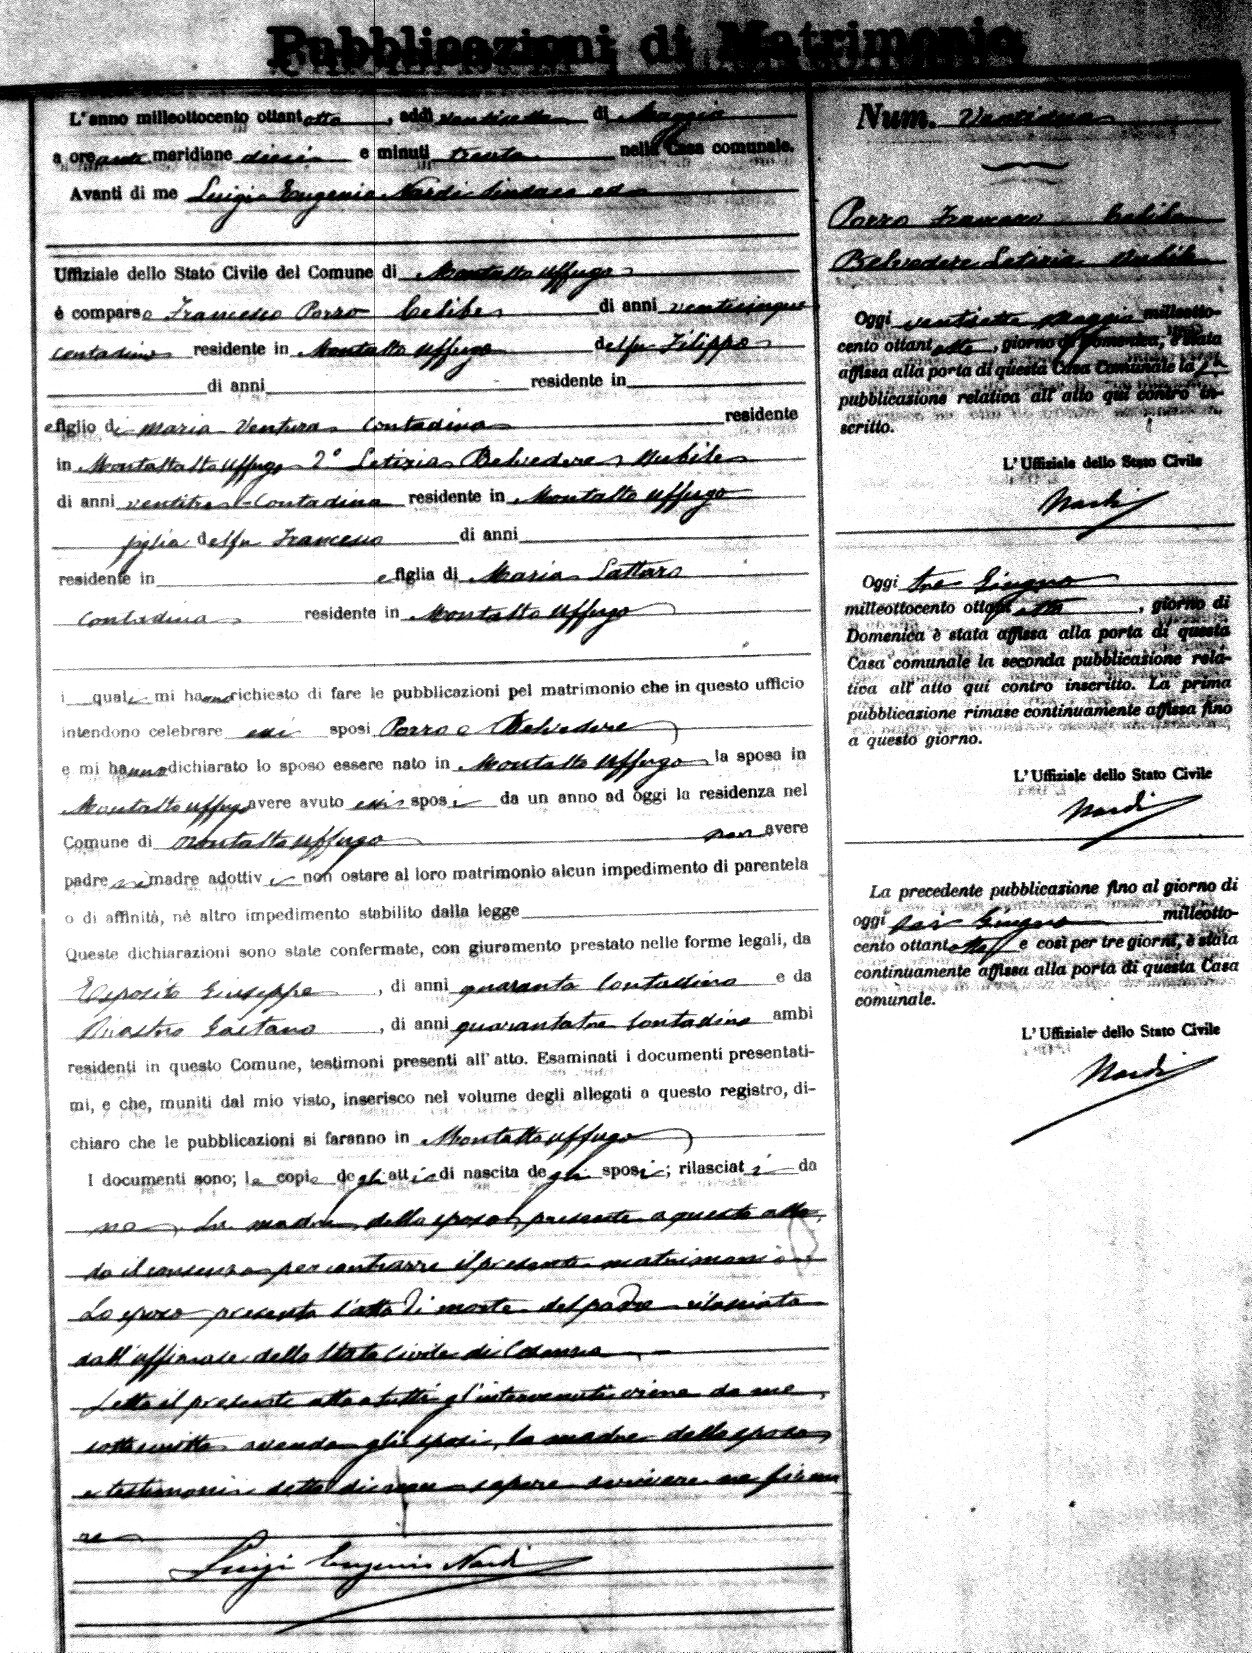 Pubblicazioni di Matrimonio
L'anno milleottocento ottantotto, addì ventisette di Maggio
a ore anti meridiane dieci e minuti trenta nella Casa comunale.
Avanti di me Luigi Eugenio Nardi Sindaco ed
Uffiziale dello Stato Civile del Comune di Montalto Uffugo
è comparso Francesco Porro Celibe di anni venticinque
contadino residente in Montalto Uffugo del fu Filippo
di anni residente in
e figlio di Maria Ventura Contadina residente
in Montalto Uffugo 2° Letizia Belvedere Nubile
di anni ventitre Contadina residente in Montalto Uffugo
figlia del fu Francesco di anni
residente in e figlia di Maria Lattaro
Contadina residente in Montalto Uffugo
i quali mi hanno richiesto di fare le pubblicazioni pel matrimonio che in questo ufficio
intendono celebrare essi sposi Porro e Belvedere
e mi hanno dichiarato lo sposo essere nato in Montalto Uffugo la sposa in
Montalto Uffugo avere avuto essi sposi da un anno ad oggi la residenza nel
Comune di Montalto Uffugo non avere
padre nè madre adottivi non ostare al loro matrimonio alcun impedimento di parentela
o di affinità, nè altro impedimento stabilito dalla legge
Queste dichiarazioni sono state confermate, con giuramento prestato nelle forme legali, da
Esposito Giuseppe, di anni quaranta Contadino e da
Gaetano, di anni quarantatre Contadino ambi
residenti in questo Comune, testimoni presenti all'atto. Esaminati i documenti presentati-
mi, e che, muniti dal mio visto, inserisco nel volume degli allegati a questo registro, di-
chiaro che le pubblicazioni si faranno in Montalto Uffugo
I documenti sono; le copie degli atti di nascita degli sposi; rilasciati da
me. La madre della sposa, presente a questo atto,
da il consenso per contrarre il presente matrimonio.
Lo sposo presenta l'atto di morte del padre rilasciato
dall'uffiziale dello Stato Civile di Cosenza.
Letto il presente atto a tutti gl'intervenuti viene da me
sottoscritto avendo gli sposi, la madre della sposa
e testimoni detto di non sapere scrivere nè firma
re
Luigi Eugenio Nardi
Num. Ventidue
Porro Francesco Celibe
Belvedere Letizia Nubile
Oggi ventisette Maggio milleotto-
cento ottantotto, giorno di Domenica, è stata
affissa alla porta di questa Casa Comunale la 1ª
pubblicazione relativa all'atto qui contro in-
scritto.
L'Uffiziale dello Stato Civile
Nardi
Oggi tre Giugno
milleottocento ottantotto, giorno di
Domenica è stata affissa alla porta di questa
Casa comunale la seconda pubblicazione rela-
tiva all'atto qui contro inscritto. La prima
pubblicazione rimase continuamente affissa fino
a questo giorno.
L'Uffiziale dello Stato Civile
Nardi
La precedente pubblicazione fino al giorno di
oggi sei Giugno milleotto-
cento ottantotto e così per tre giorni, è stata
continuamente affissa alla porta di questa Casa
comunale.
L'Uffiziale dello Stato Civile
Nardi